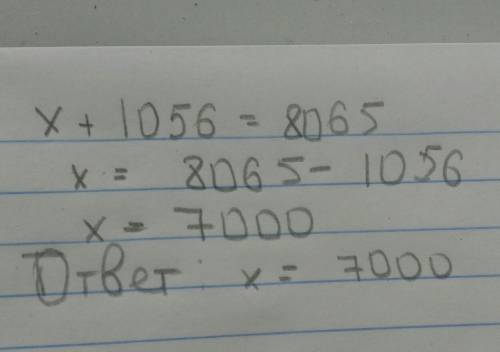 x + 1056 = 8065
x = 8065 - 1056
x = 7000
Ответ: x = 7000